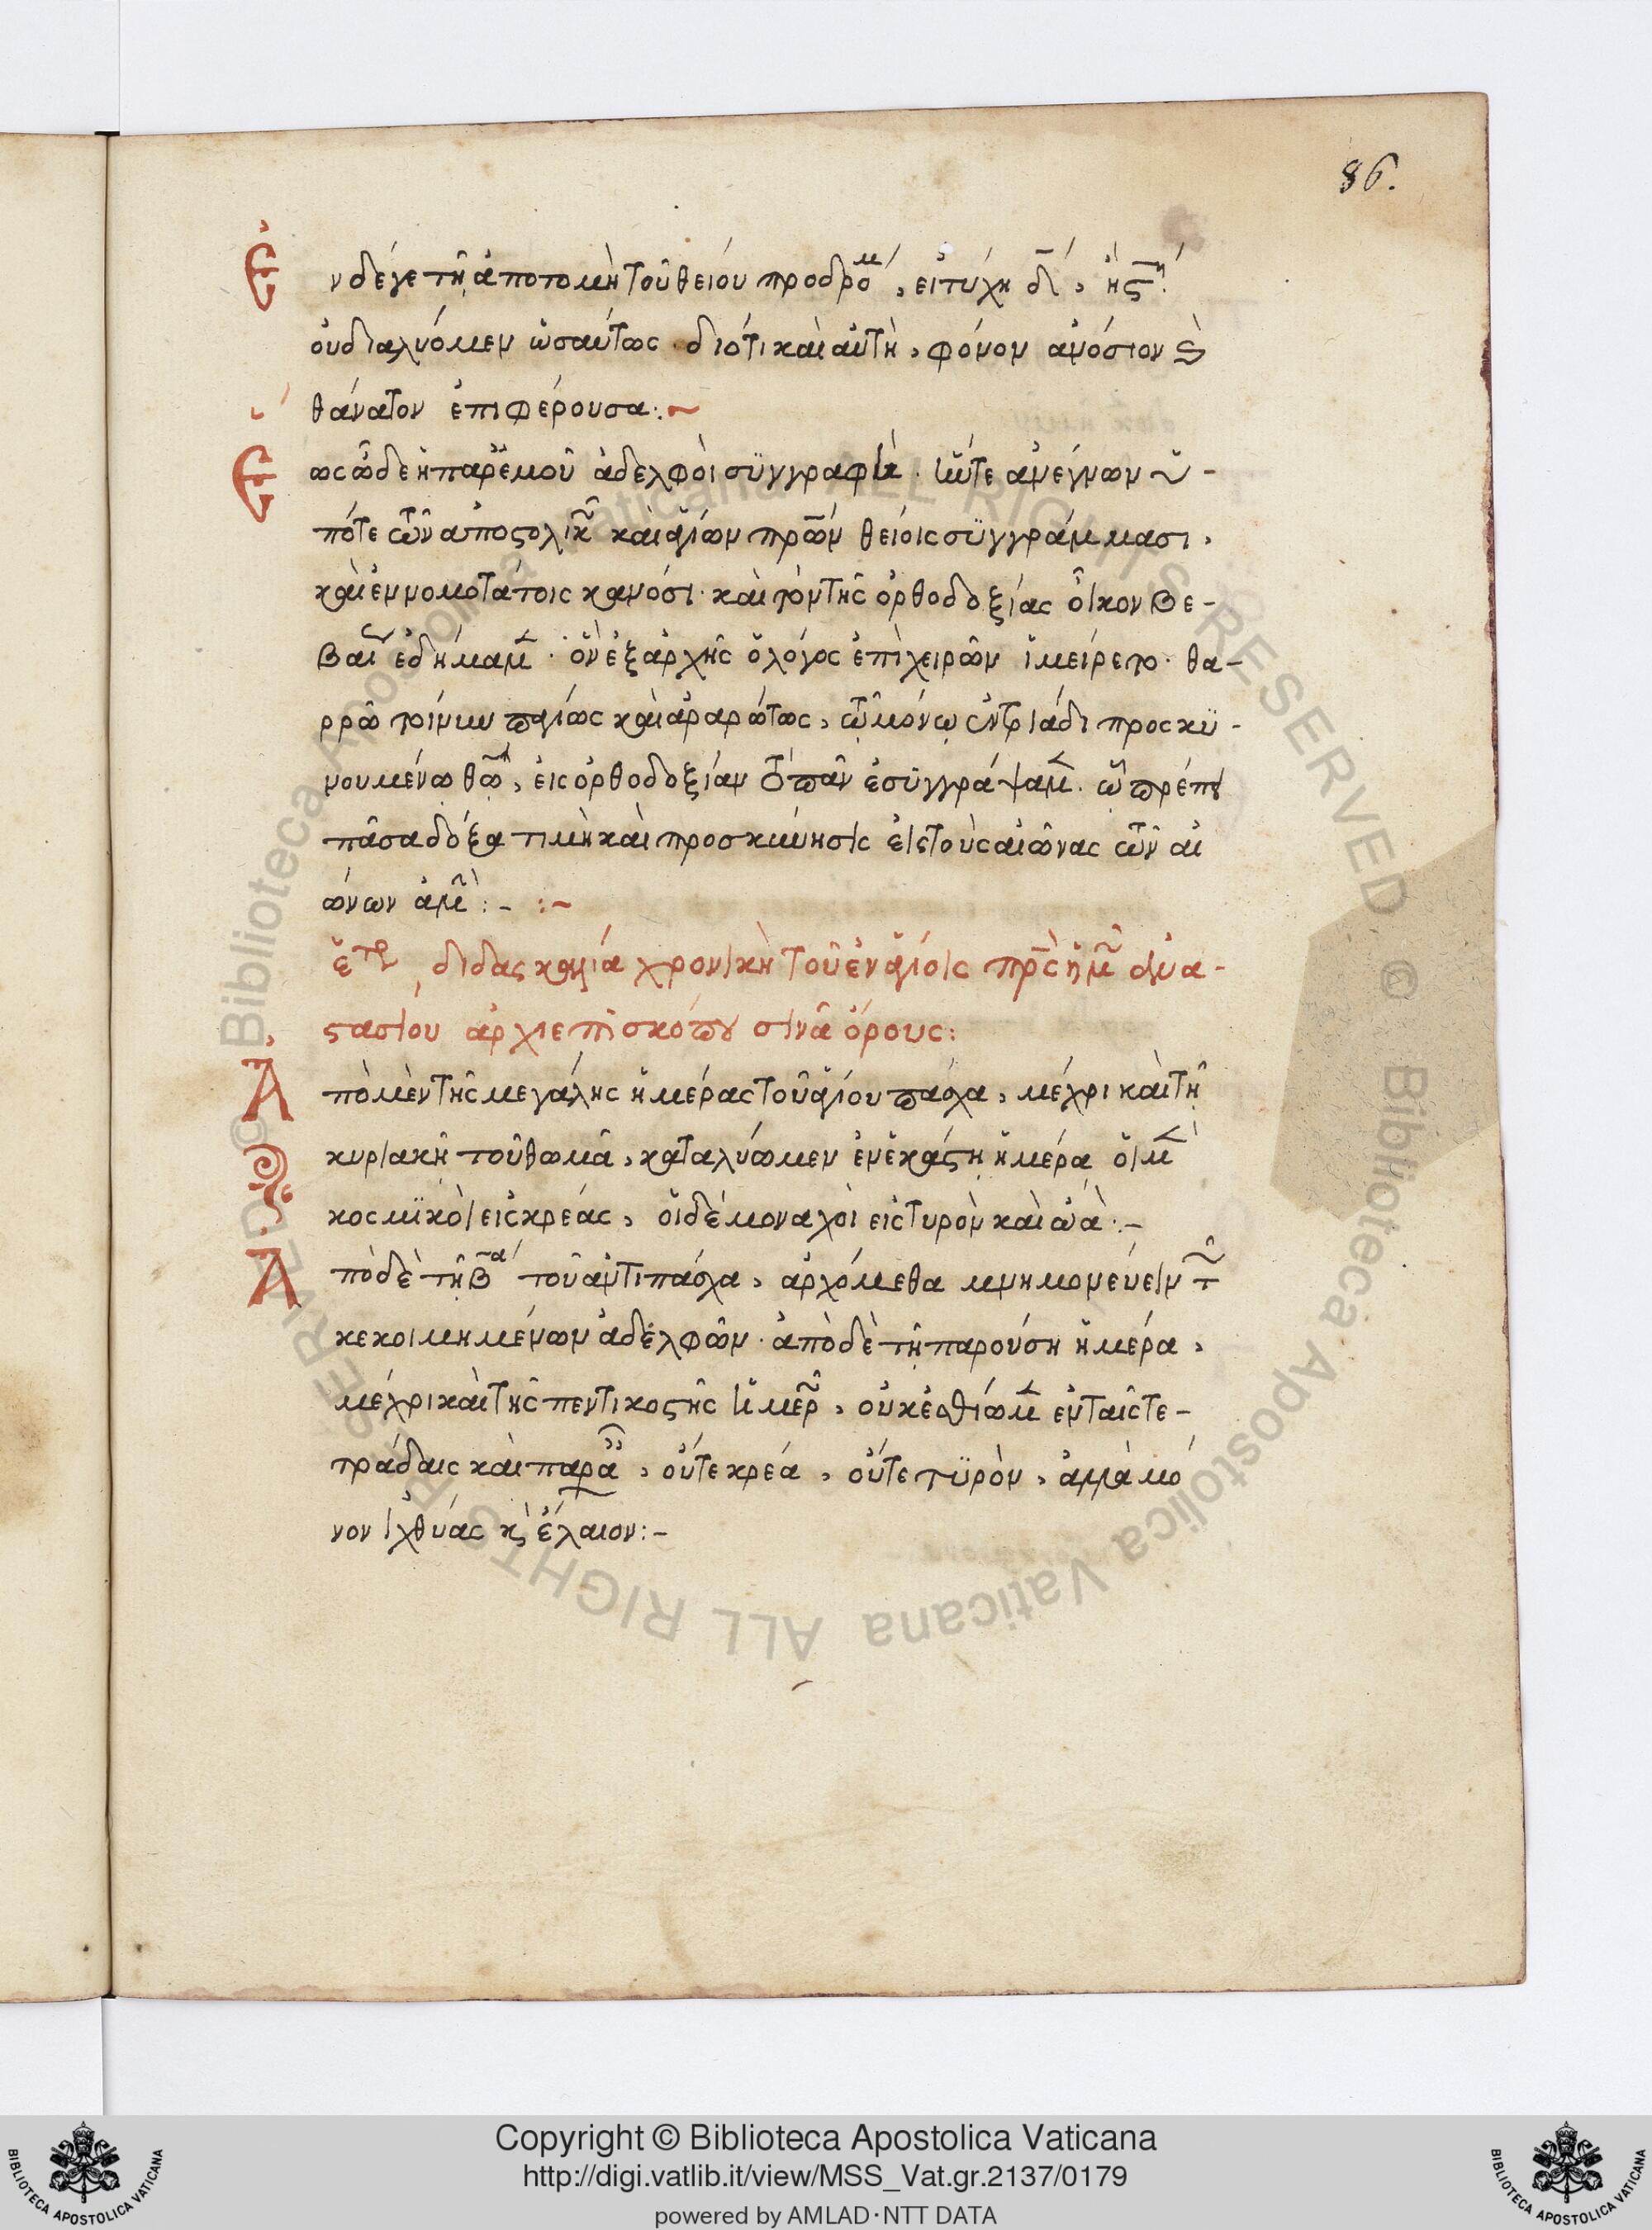 86.
Ἐν δέ γε τῆ ἀποτομὴ τοῦ θείου προδρομ, εἰ τύχη δ, ἢ ς
οὐ διαλυόμεν ὡσαύτως · διότι καὶ αὐτὴ, φόνον ἀνόσιον ϗ
θάνατον ἐπιφέρουσα:~
Ἕως ὧδε ἡ παρ' ἐμοῦ ἀδελφοὶ συγγραφὴ ·
πότε τῶν ἀποστολικ καὶ ἁγίων πρων θείοις συγγράμμασι,
καὶ ἐννομοτάτοις κανόσι · καὶ τὸν τῆς ὀρθοδοξίας οἶκον βε-
· ὃν ἐξ ἀρχῆς ὁ λόγος ἐπιχειρῶν ἱμείρετο · θα-
ρρῶ τοίνυν παγίως καὶ ἀραρότως, τῷ μόνῳ ἐν τριάδι προσκϋ-
νουμένω θω, εἰς ὀρθοδοξίαν τὸ πᾶν ἐσϋγγράψαμ · ᾧ πρέπει
πᾶσα δόξα τιμὴ καὶ προσκύνησις εἰς τοὺς αἰῶνας τῶν αἰ
ώνων ἀμ:- :~
ἕτρ διδασκαλία χρονικὴ τοῦ ἐν ἁγίοις πρς ἡμ ἀνα-
στασίου ἀρχιεπισκόπου σινᾶ ὄρους:
Ἀπὸ μὲν τῆς μεγάλης ἡμέρας τοῦ ἁγίου πάσχα, μέχρι καὶ τῆ
κυριακῆ τοῦ θωμᾶ, καταλύωμεν ἐν ἑκάστη ἡμέρα οἱ μ
κοσμϊκοὶ εἰς κρέας, οἱ δὲ μοναχοὶ εἰς τυρὸν καὶ ὠὰ:-
Ἀπὸ δὲ τῆ βα τοῦ ἀντιπάσχα, ἀρχόμεθα μνημονεύειν τ
κεκοιμημένων ἀδελφῶν · ἀπὸ δὲ τῆ παρούση ἡμέρα,
μέχρι καὶ τῆς πεντικοστῆς ἡμερ, οὐκ ἐσθίωμ ἐν ταῖς τε-
τράδαις καὶ παρα, οὔτε κρέα, οὔτε τϋρὸν, ἀλλὰ μό
νον ἰχθύας ϗ ἔλαιον:-
Copyright © Biblioteca Apostolica Vaticana
http://digi.vatlib.it/view/MSS_Vat.gr.2137/0179
powered by AMLAD·NTT DATA
BIBLIOTECA APOSTOLICA VATICANA
BIBLIOTECA APOSTOLICA VATICANA
© Biblioteca Apostolica Vaticana ALL RIGHTS RESERVED © Biblioteca Apostolica Vaticana ALL RIGHTS RESERVED